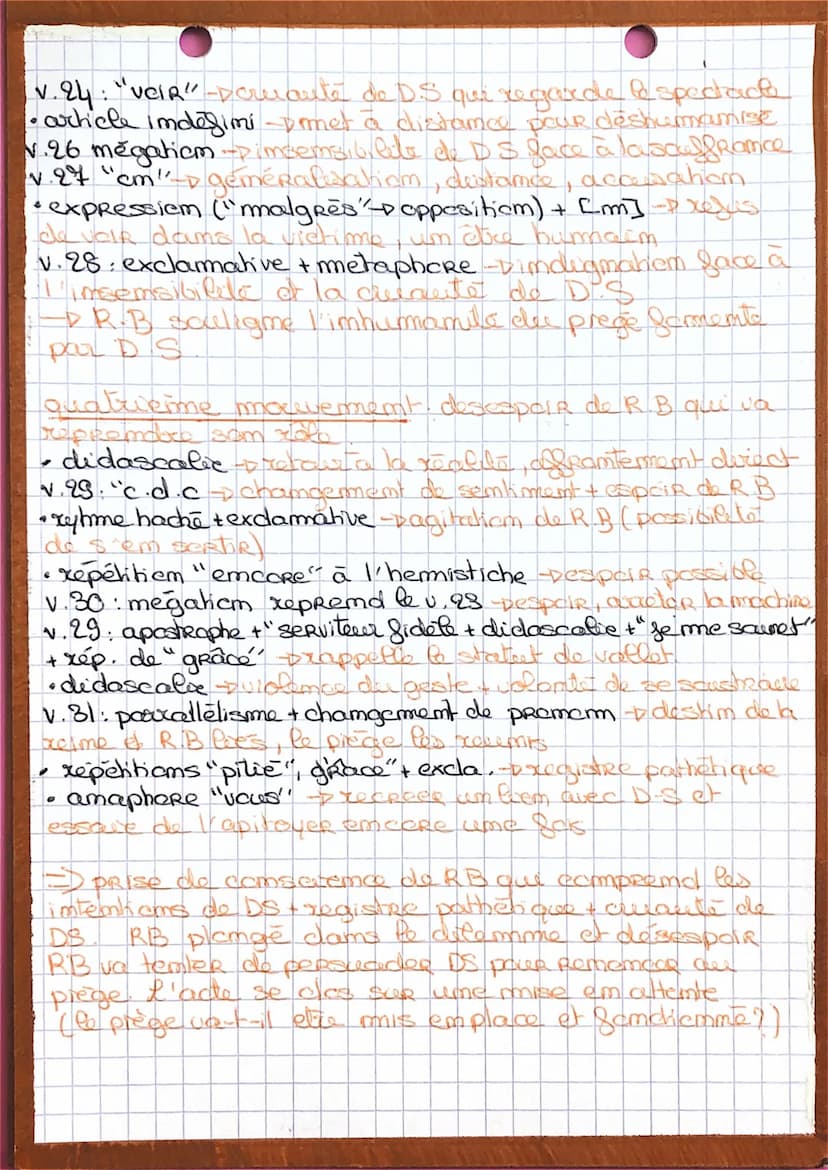 v.24 : "voir" → cruauté de D.S qui regarde le spectacle
• article indéfini → met à distance pour déshumanisé
v.26 négation → insensibilité de DS face à la souffrance
v.27 "on" → généralisation, distance, accusation
• expression ("malgrés" → opposition) + [m] → refus
de voir dans la victime, un être humain
v.28 : exclamative + métaphore → indignation face à
l'insensibilité et la cruauté de D.S
→ R.B souligne l'inhumanité du piège
par D S.
quatrième mouvement : désespoir de R.B qui va
reprendre son rôle
• didascalie → retour à la réalité, affrontement direct
v.29 : "c.d.c → changement de sentiment + espoir de RB
• rythme haché + exclamative → agitation de R.B (possibilité
de s'en sortir)
• répétition "encore" à l'hemistiche → espoir possible
v.30 : négation reprend le v.29 → espoir, arreter la machine
v.29 : apostrophe + "serviteur fidèle + didascalie + "je me soumet"
+ rép. de "grâce" → rappelle le statut de vallet.
• didascalie → violence du geste + volonté de se soustraire
v.31 : parrallélisme + changement de pronom → destin de la
reine et R.B liés, le piège les réunis
• répétitions "pitié", grâce" + excla. → registre pathétique
• anaphore "vous" → recréer un lien avec D-S et
essaie de l'apitoyer encore une fois
⇒ prise de conscience de RB qui comprend les
intentions de DS + registre pathétique + cruauté de
DS. RB plongé dans le dilemme et désespoir
RB va tenter de persuader DS pour renoncer au
piège. L'acte se clos sur une mise en attente
(le piège va-t-il être mis en place et fonctionné ?)